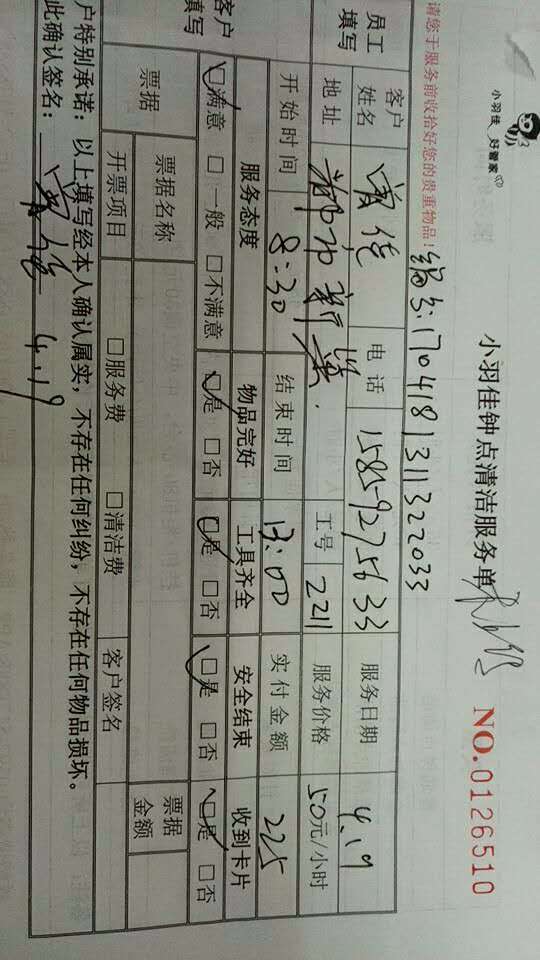 小羽佳 好管家
小羽佳钟点清洁服务单
NO.0126510
请您于服务前收拾好您的贵重物品！
编号：1704181311322033
员工填写
客户姓名 电话 15859275633 服务日期 4.19
地址 工号 2211 服务价格 50元/小时
开始时间 8:30 结束时间 13:00 实付金额 225
客户填写
服务态度 物品完好 工具齐全 安全结束 收到卡片
☑满意 □一般 □不满意 ☑是 □否 ☑是 □否 ☑是 □否 ☑是 □否
票据 票据名称 票据金额
开票项目 □服务费 □清洁费 客户签名
户特别承诺：以上填写经本人确认属实，不存在任何纠纷，不存在任何物品损坏。
此确认签名： 4.19